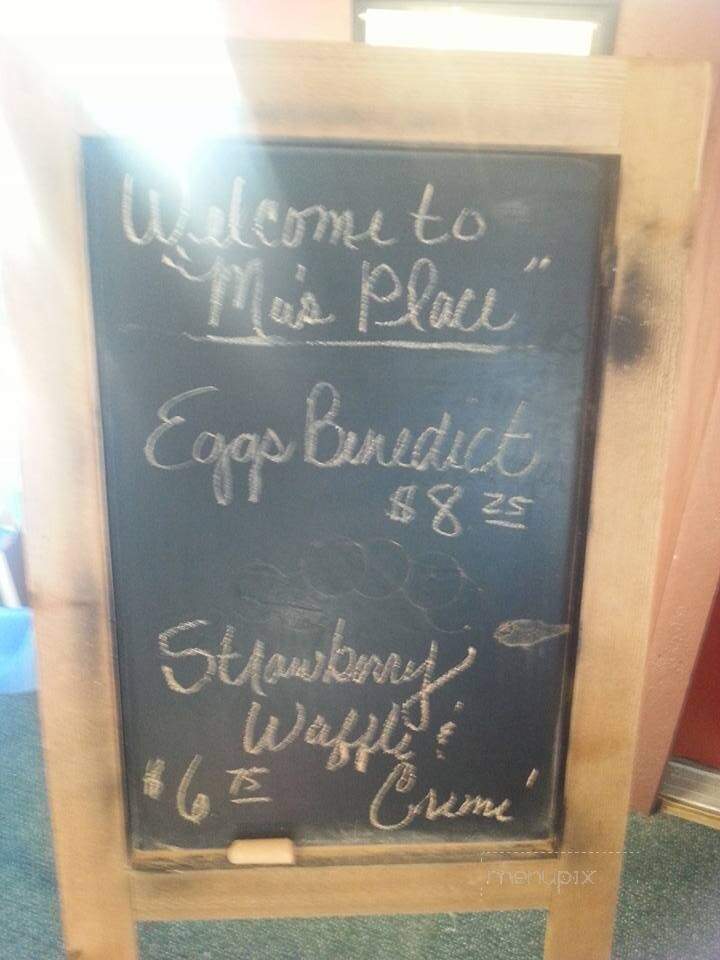 Welcome to
"Ma's Place"
Eggs Benedict
$8 25
Strawberry
Waffle &
$6 75 Creme'
menupix